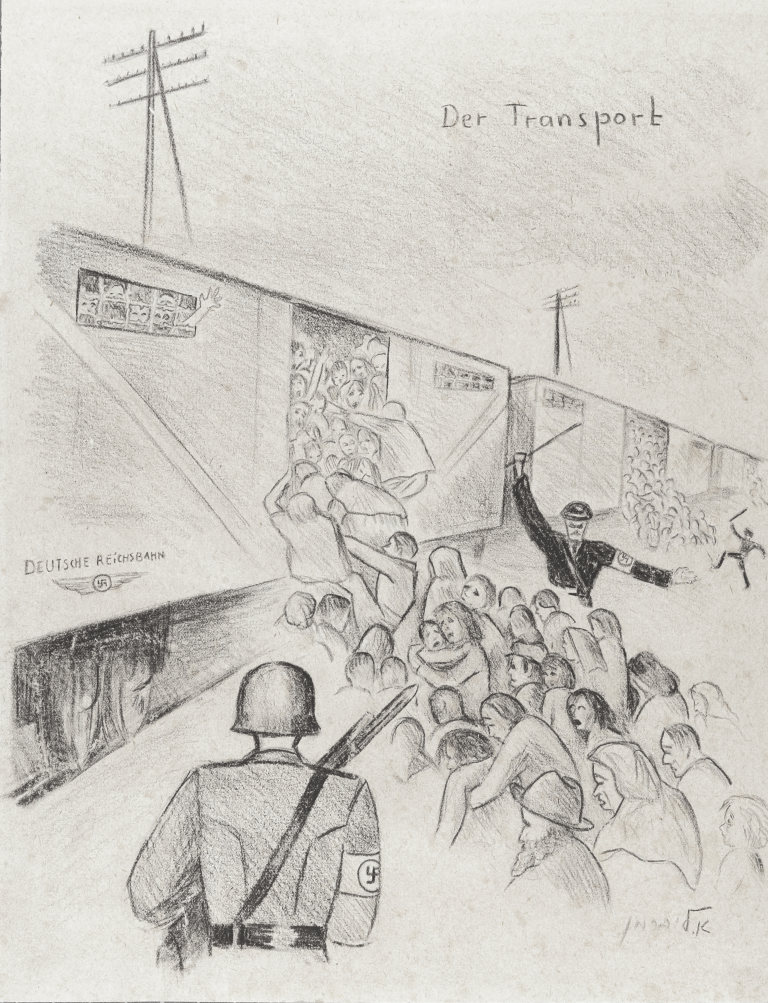 Der Transport
DEUTSCHE REICHSBAHN